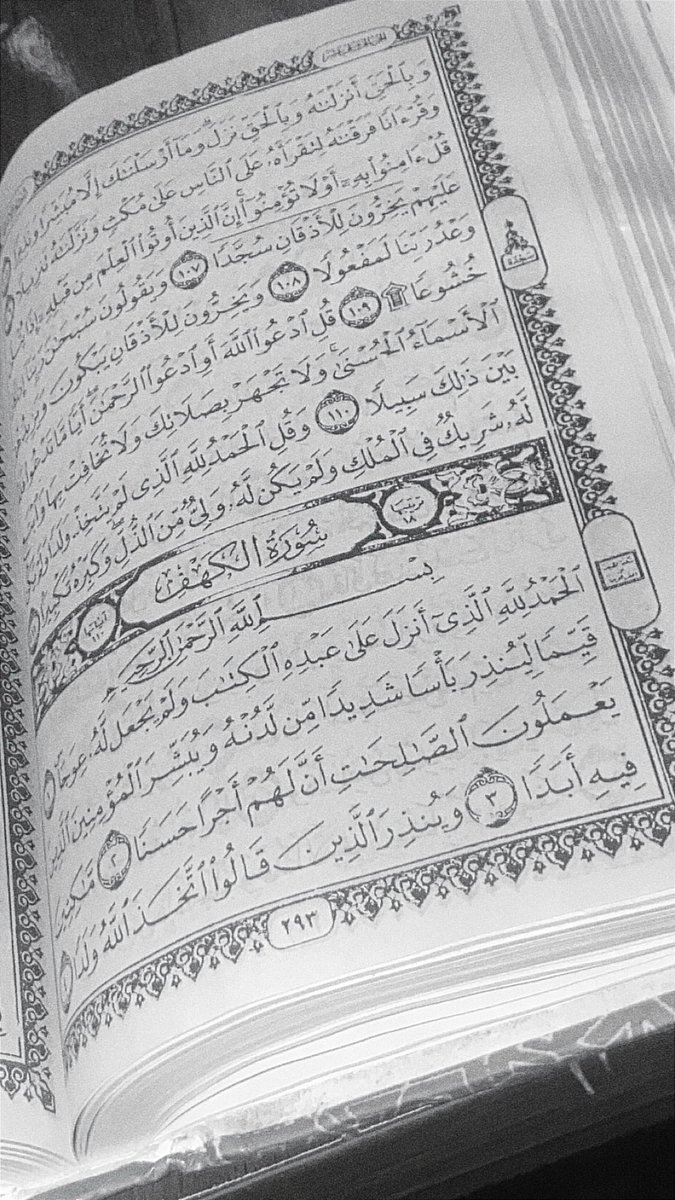 وَبِٱلْحَقِّ أَنزَلْنَٰهُ وَبِٱلْحَقِّ نَزَلَ ۗ وَمَآ أَرْسَلْنَٰكَ إِلَّا مُبَشِّرًا وَنَذِيرًا
وَقُرْءَانًا فَرَقْنَٰهُ لِتَقْرَأَهُۥ عَلَى ٱلنَّاسِ عَلَىٰ مُكْثٍ وَنَزَّلْنَٰهُ تَنزِيلًا
قُلْ ءَامِنُوا۟ بِهِۦٓ أَوْ لَا تُؤْمِنُوٓا۟ ۚ إِنَّ ٱلَّذِينَ أُوتُوا۟ ٱلْعِلْمَ مِن قَبْلِهِۦٓ إِذَا
عَلَيْهِمْ يَخِرُّونَ لِلْأَذْقَانِ سُجَّدًا ١٠٧ وَيَقُولُونَ سُبْحَٰنَ رَبِّنَآ
وَعْدُ رَبِّنَا لَمَفْعُولًا ١٠٨ وَيَخِرُّونَ لِلْأَذْقَانِ يَبْكُونَ
خُشُوعًا ۩ ١٠٩ قُلِ ٱدْعُوا۟ ٱللَّهَ أَوِ ٱدْعُوا۟ ٱلرَّحْمَٰنَ ۖ أَيًّا مَّا تَدْعُوا۟
ٱلْأَسْمَآءُ ٱلْحُسْنَىٰ ۚ وَلَا تَجْهَرْ بِصَلَاتِكَ وَلَا تُخَافِتْ بِهَا
بَيْنَ ذَٰلِكَ سَبِيلًا ١١٠ وَقُلِ ٱلْحَمْدُ لِلَّهِ ٱلَّذِى لَمْ يَتَّخِذْ وَلَدًا
لَّهُۥ شَرِيكٌ فِى ٱلْمُلْكِ وَلَمْ يَكُن لَّهُۥ وَلِىٌّ مِّنَ ٱلذُّلِّ ۖ وَكَبِّرْهُ تَكْبِيرًۢا
سجدة
ترتيبها ١٨ سُورَةُ الكَهْفِ آياتها ١١٠
بِسْمِ ٱللَّهِ ٱلرَّحْمَٰنِ ٱلرَّحِيمِ
ٱلْحَمْدُ لِلَّهِ ٱلَّذِىٓ أَنزَلَ عَلَىٰ عَبْدِهِ ٱلْكِتَٰبَ وَلَمْ يَجْعَل لَّهُۥ عِوَجَا ۜ ١
قَيِّمًا لِّيُنذِرَ بَأْسًا شَدِيدًا مِّن لَّدُنْهُ وَيُبَشِّرَ ٱلْمُؤْمِنِينَ ٱلَّذِينَ
يَعْمَلُونَ ٱلصَّٰلِحَٰتِ أَنَّ لَهُمْ أَجْرًا حَسَنًا ٢ مَّٰكِثِينَ
فِيهِ أَبَدًا ٣ وَيُنذِرَ ٱلَّذِينَ قَالُوا۟ ٱتَّخَذَ ٱللَّهُ وَلَدًا ٤
٢٩٣